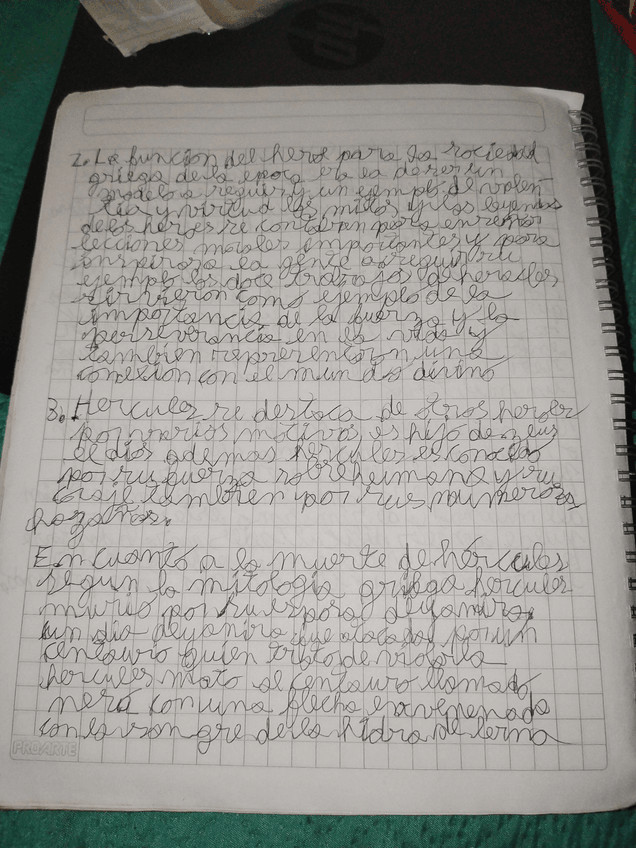 hp
2. La función del heroe para la sociedad
griega de la epoca era la de ser un
modelo a seguir y un ejemplo de valen-
tia y virtud los mitos y las leyendas
de los heroes se contaban para enseñar
lecciones morales importantes y para
inspirar a la gente a seguir su
ejemplo los doce trabajos de heracles
sirvieron como ejemplo de la
importancia de la fuerza y la
perseverancia en la vida y
tambien representan una
conexion con el mundo divino
3. Hercules se destaca de otros heroes
por varios motivos es hijo de zeus
el dios ademas hercules es conocido
por su fuerza sobrehumana y su
coraje tambien por sus numerosas
hazañas.
En cuanto a la muerte de hércules
segun la mitologia griega hercules
murio por su esposa deyanira,
un dia deyanira fue atacada por un
centauro quien trato de violarla
hercules mato al centauro llamado
neso con una flecha envenenada
con la sangre de la hidra de lerna
PROARTE